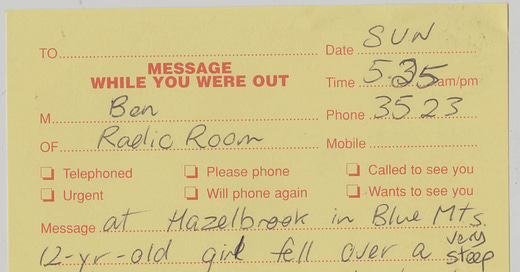 TO
Date SUN
MESSAGE
WHILE YOU WERE OUT
Time 5.35 am/pm
M Ben
Phone 3523
OF Radio Room
Mobile
Telephoned Please phone Called to see you
Urgent Will phone again Wants to see you
Message at Hazelbrook in Blue Mts.
12-yr-old girl fell over a very steep